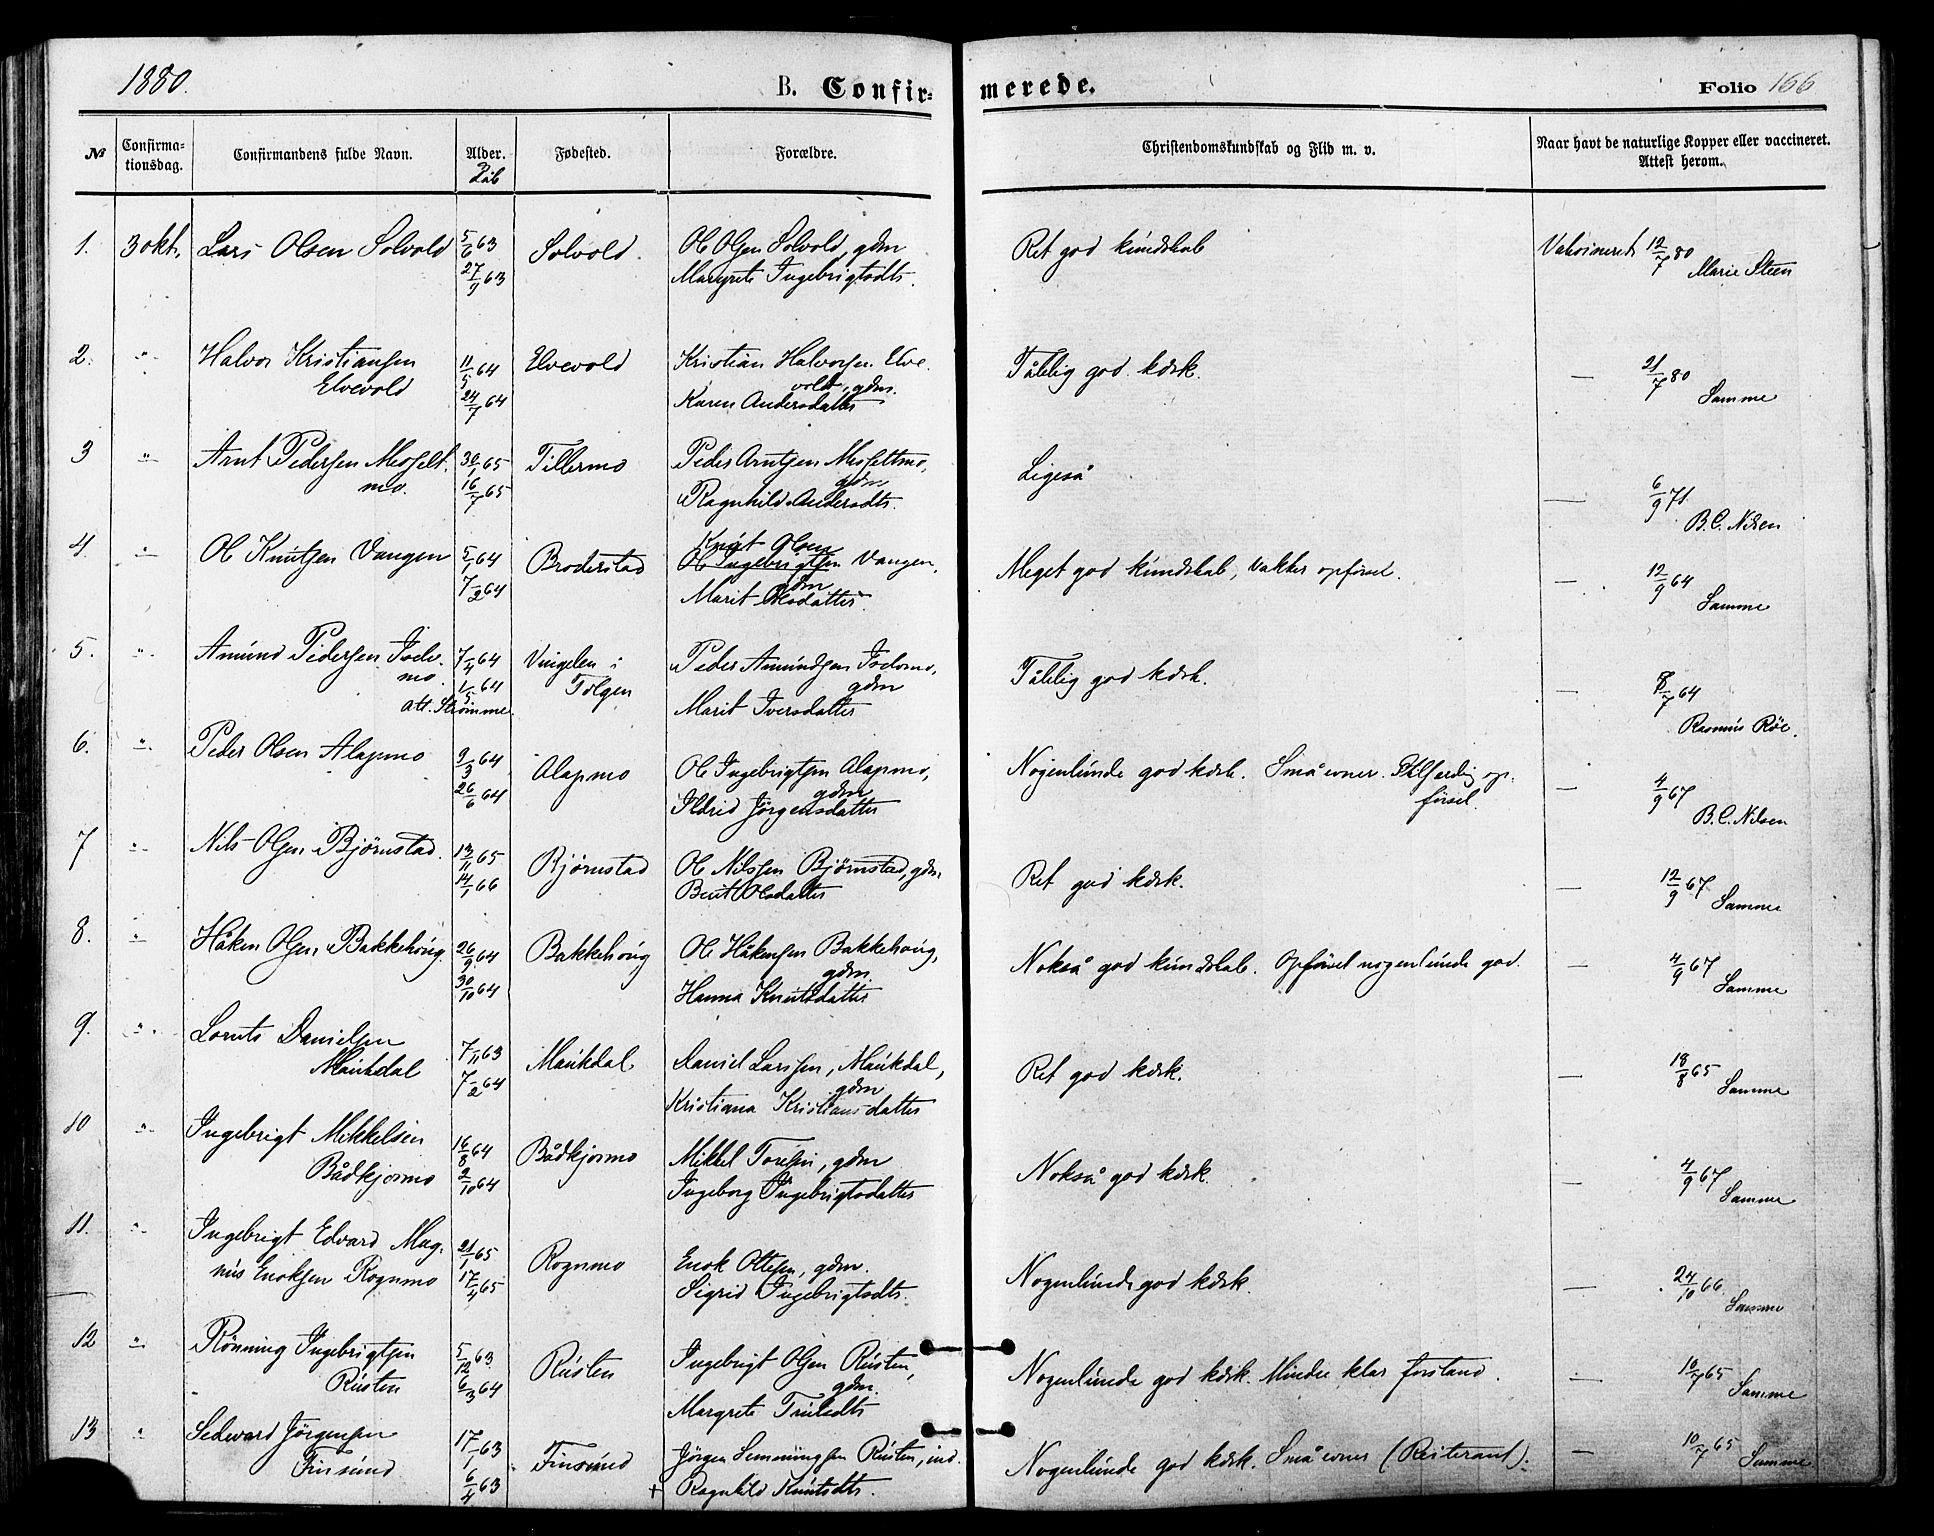 1880.
B. Confir-
merede.
Folio 166
№
Confirma-
tionsdag.
Confirmandens fulde Navn.
Alder.
Dåb
Fødested.
Forældre.
Christendomskundskab og Flid m. v.
Naar havt de naturlige Kopper eller vaccineret.
Attest herom.
1. 3 okt. Lars Olsen Solvold 5/6 63 Solvold. Ole Olsen Solvold, gdm Ret god kundskab Vaksineret 12/7 80
27/9 63 Margrete Ingebrigtsdtr. Marie Steen
2. " Halvor Kristiansen 11/5 64 Elvevold Kristian Halvorsen Elve- Tålelig god kdsk. — 21/7 80
Elvevold 24/7 64 vold, gdm. Samme
Karen Andersdatter
3 " Arnt Pedersen Messelt- 30/1 65 Tillermo Peder Arntsen Messeltmo, Ligeså — 6/9 71
mo. 16/7 65 gdm B.C. Nilsen
Ragnhild Andersdtr.
4. " Ole Knutsen Vangen 5/1 64 Broderstad Knut Olsen
Ole Ingebrigtsen Vangen, Meget god kundskab, vakker opførsel. — 12/9 64
7/2 64 gdm Samme
Marit Olsdatter
5. " Amund Pedersen Fosse-
mo. 7/4 64 Vingelen i Peder Amundsen Fossmo, Tålelig god kdsk. — 8/7 64
1/5 64 Tolgen gdm Rasmus Røe.
att. Strømme. Marit Iversdatter
6. " Peder Olsen Alapmo 9/3 64 Alapmo Ole Ingebrigtsen Alapmo, Nogenlunde god kdsk. Små evner. Stilfærdig op- — 4/9 67
26/6 64 gdm førsel. B.C. Nilsen
Ildrid Jørgensdatter
7 " Nils Olsen Bjørnstad. 13/11 65 Bjørnstad Ole Nilssen Bjørnstad, gdm. Ret god kdsk. — 12/9 67
14/1 66 Berit Olsdatter Samme
8. " Håken Olsen Bakkehaug. 26/9 64 Bakkehoug Ole Håkensen Bakkehoug, Nokså god kundskab. Opførsel nogenlunde god. — 4/9 67
30/10 64 gdm. Samme
Hanna Knutsdatter
9. " Lornts Danielsen
Maukdal 7/11 63 Maukdal Daniel Larssen, Maukdal, Ret god kdsk. — 18/8 65
7/2 64 gdm Samme
Kristiana Kristiansdatter
10 " Ingebrigt Mikkelsen 16/8 64 Bådkjosmo Mikkel Toresen, gdm Nokså god kdsk. — 4/9 67
Bådkjosmo 2/10 64 Ingeborg Ingebrigtsdatter Samme
11. " Ingebrigt Edvard Mag- 21/1 65 Rognmo Enok Ottesen, gdm. Nogenlunde god kdsk. — 24/10 66
nus Enoksen Rognmo 17/4 65 Sigrid Ingebrigtsdtr. Samme
12 " Rønning Ingebrigtsen 5/12 63 Rusten Ingebrigt Olsen Rusten, Nogenlunde god kdsk. Mindre klar forstand. — 10/7 65
Rusten 6/3 64 gdm. Samme
Margrete Trulsdtr
13 " Sedward Jørgensen 17/1 63 Finsund Jørgen Semmingsen Rusten, ind. Nogenlunde god kdsk. Små evner (Resterant). — 10/7 65
Finsund 6/4 63 + Ragnhild Knutsdtr. Samme